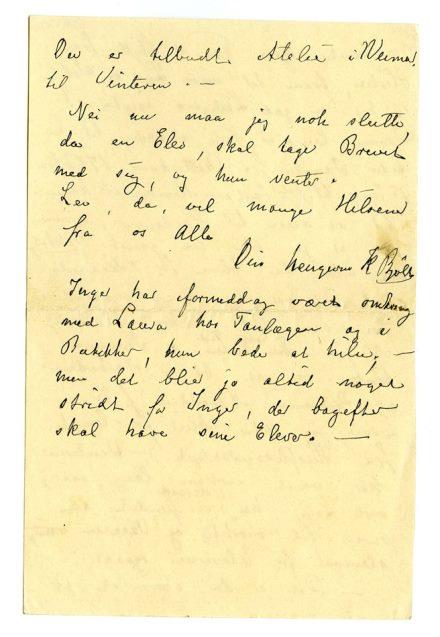 Der er tilbudt Atelier i Weimar
til Vinteren. —
Nei nu maa jeg nok slutte,
da en Elev, skal tage Brevet
med sig, og hun venter.
Lev, da, vel mange Hilsener
fra os Alle
Din hengivne K
Inger har formeddag været omkring
med Laura hos Tandlægen, og i
Butikker, hun bede at hilse, —
men det blir jo altid noget
stridt for Inger, der bagefter
skal have sine Elever. —